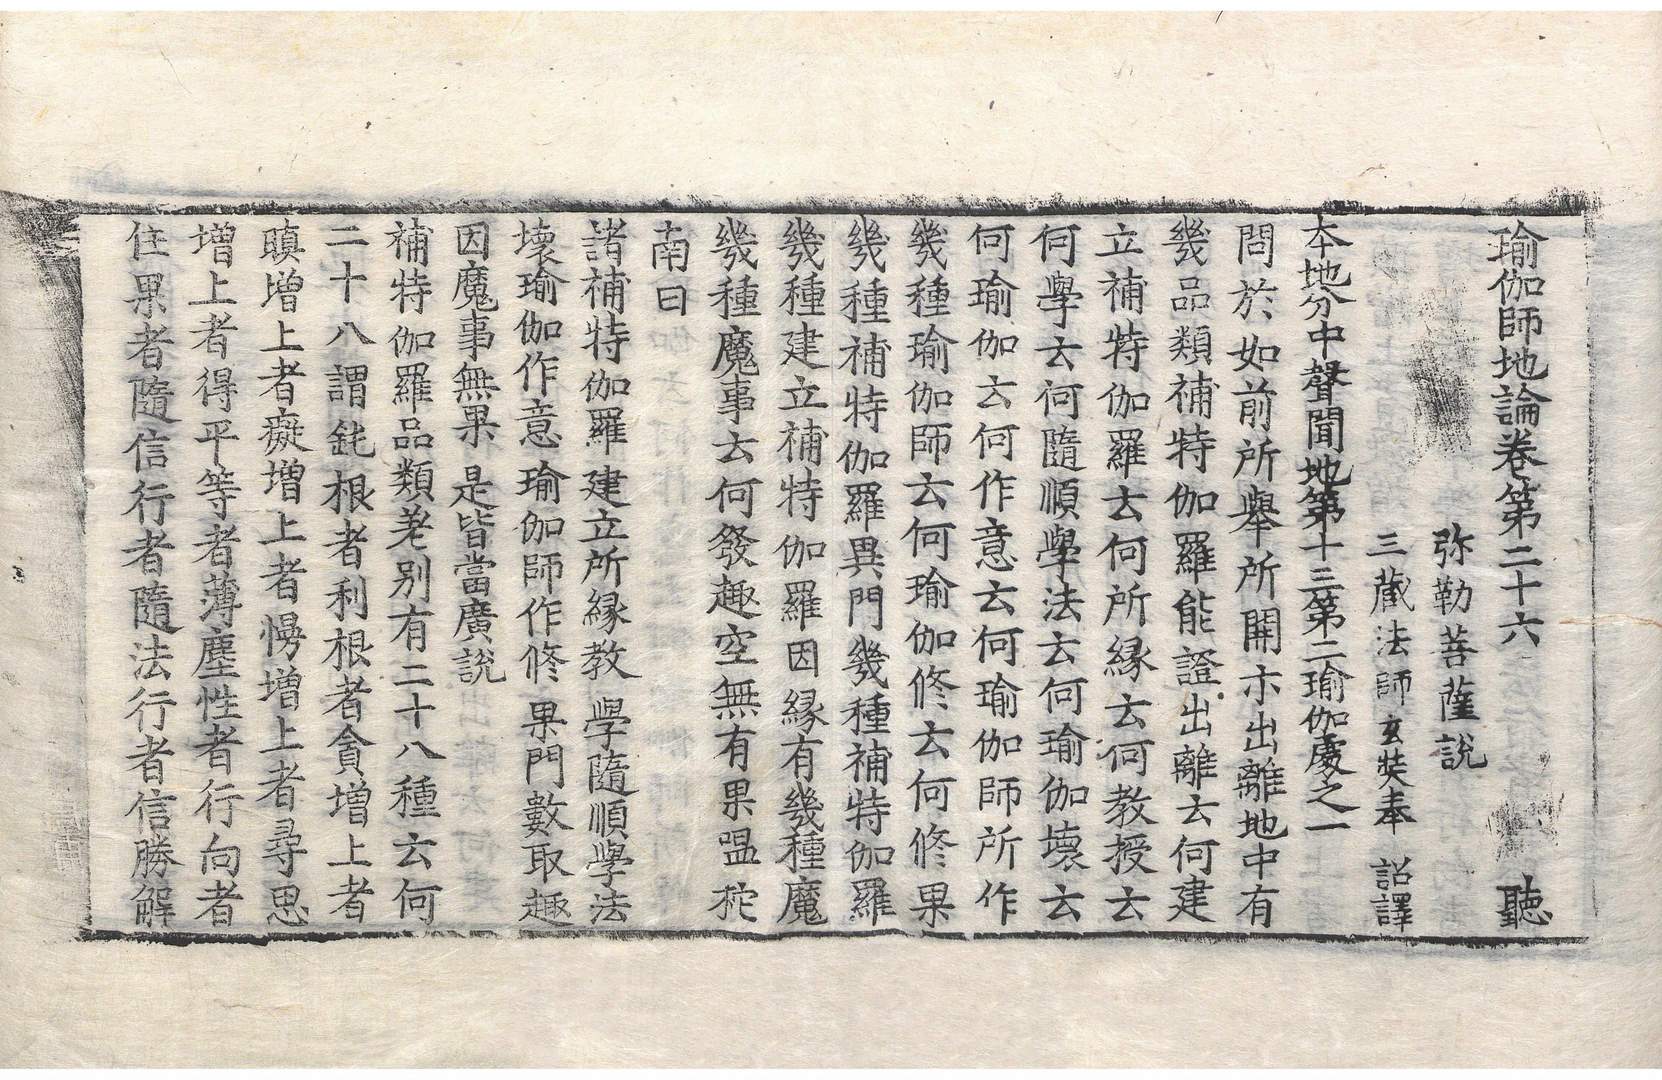 瑜伽師地論卷第二十六 聽
弥勒菩薩說
三藏法師玄奘奉 詔譯
本地分中聲聞地第十三第二瑜伽處之一
問於如前所舉所開示出離地中有
幾品類補特伽羅能證出離云何建
立補特伽羅云何所緣云何教授云
何學云何隨順學法云何瑜伽壞云
何瑜伽云何作意云何瑜伽師所作
幾種瑜伽師云何瑜伽修云何修果
幾種補特伽羅異門幾種補特伽羅
幾種建立補特伽羅因緣有幾種魔
幾種魔事云何發趣空無有果嗢柁
南曰
諸補特伽羅建立所緣教 學隨順學法
壞瑜伽作意 瑜伽師作修 果門數取趣
因魔事無果 是皆當廣說
補特伽羅品類差別有二十八種云何
二十八謂鈍根者利根者貪增上者
瞋增上者癡增上者慢增上者尋思
增上者得平等者薄塵性者行向者
住果者隨信行者隨法行者信勝解